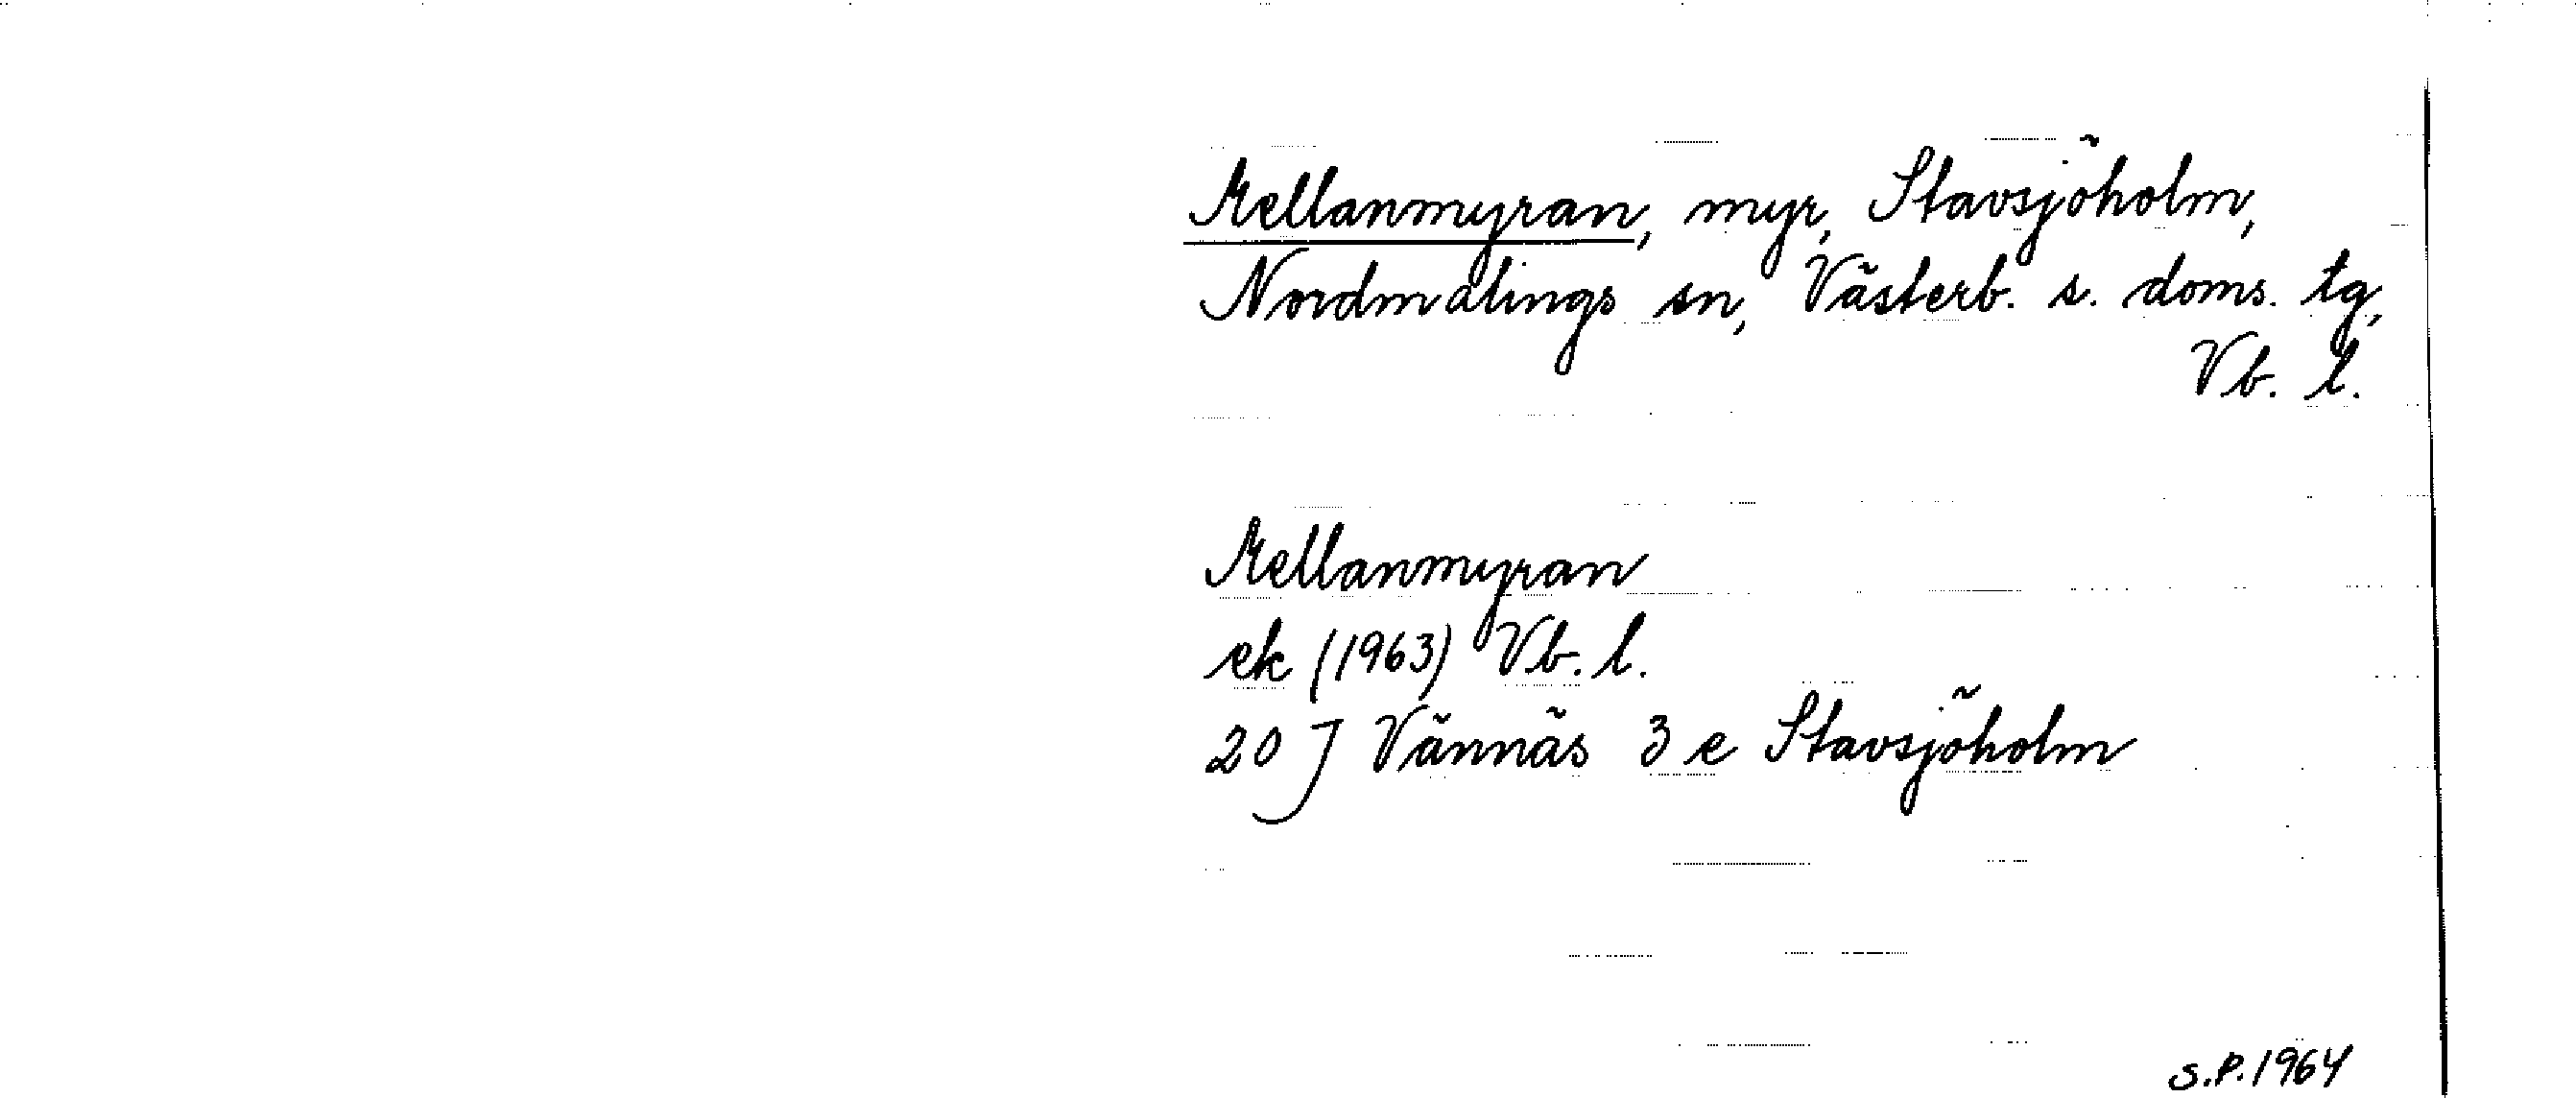 Mellanmyran, myr, Stavsjöholm,
Nordmalings sn, Västerb. s. doms. tg,
Vb. l.
Mellanmyran
ek (1963) Vb. l.
20 J Vännäs 3 e Stavsjöholm
S.P. 1964